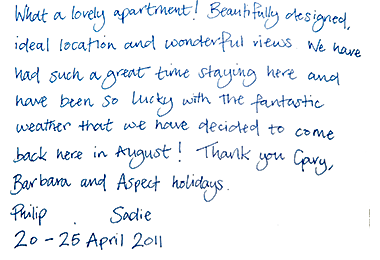 What a lovely apartment! Beautifully designed,
ideal location and wonderful views. We have
had such a great time staying here and
have been so lucky with the fantastic
weather that we have decided to come
back here in August! Thank you Gary,
Barbara and Aspect holidays.
Philip . Sadie
20 - 25 April 2011